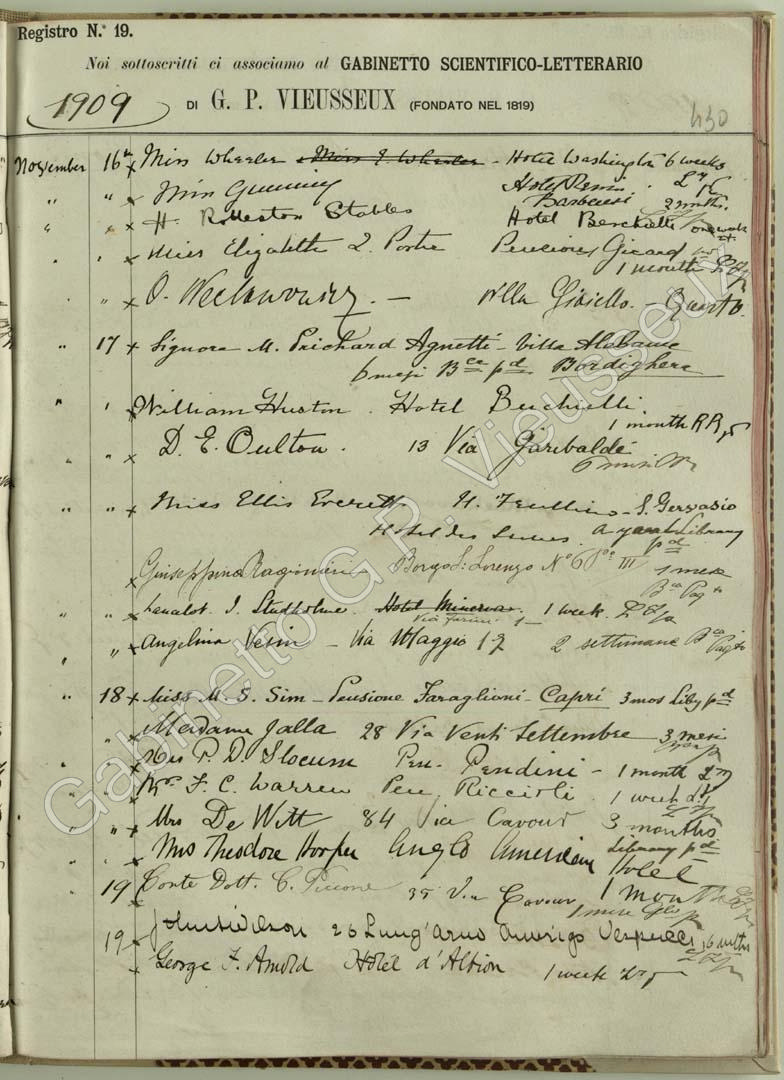 Registro N.° 19.
Noi sottoscritti ci associamo al GABINETTO SCIENTIFICO-LETTERARIO
1909 DI G. P. VIEUSSEUX (FONDATO NEL 1819)
430
November 16th Miss Wheeler Miss E. Wheeler - Hotel Washington 6 weeks
" " Miss Gunning Hotel
" " H. Rolleston Stables Hotel Berchielli one week
" " Miss Elizabeth L. Porter Pension Girard
1 month
" " O. - Villa Gioiello - Quarto
" 17 Signora M. Prichard Agnetti - Villa Alabama
6 mesi Bca pd Bordighera
" " William Huston. Hotel Berchielli.
1 month RR
" " D. E. Oulton. 13 Via Garibaldi
6 mesi
" " Miss Ellis Everett S. Gervasio
Hotel des a year Library
pd
Giuseppina Ragionieri Borgo S. Lorenzo No 6 Po III 1 mese
Bca Pag to
" " Lancelot. J. Studholme. Hotel Minerva. 1 week.
Via Farini 1
" " Angelina Via Maggio 17 2 settimane Bca Pag to
" 18 Miss M. S. Sim - Pensione Faraglioni - Capri 3 mos Liby pd
" Madame Jalla 28 Via Venti Settembre 3 mesi
" " Mrs P. D. Slocum Pen. Pendini - 1 month
" " Mrs F. C. Warren Pen Riccioli. 1 week
" " Mrs De Witt 84 Via Cavour 3 months
Library pd
" " Mrs Theodore Anglo American Hotel
1 month
19 Conte Dott. C. Picone 35 Via Cavour
1 mese
19 John Wilson 26 Lung'arno Amerigo Vespucci 6 mths
George F. Arnold Hotel d'Albion 1 week
Gabinetto G. P. Vieusseux